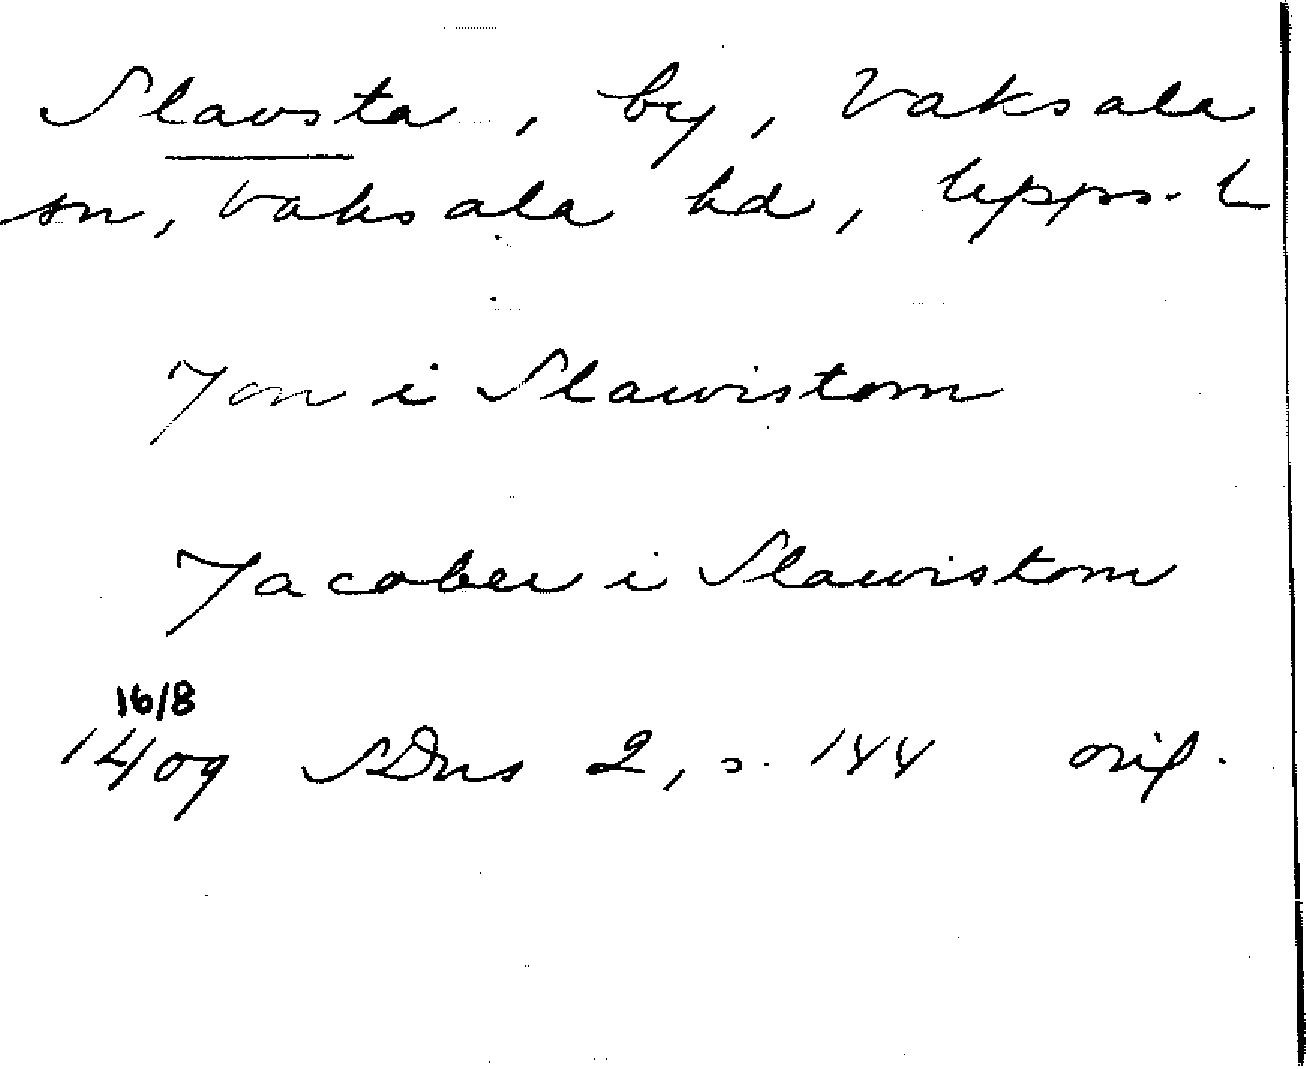 Slavsta, by, Vaksala
sn, Vaksala hd, Upps. l
Jon i Slawistom
Jacober i Slawistom
16/8
1409 SDns 2, s. 144 orig.